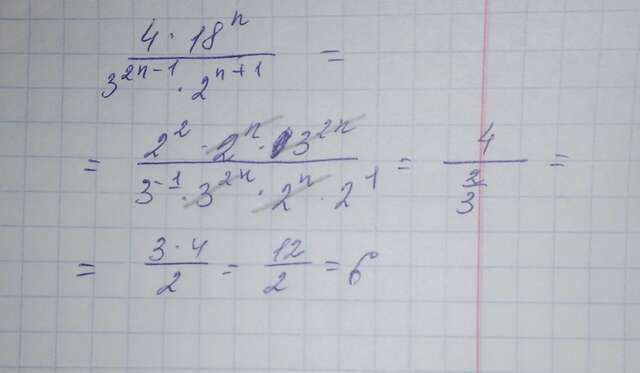 4 · 18ⁿ
=
3²ⁿ⁻¹ · 2ⁿ⁺¹
2² · 2ⁿ · 3²ⁿ 4
= = =
3⁻¹ · 3²ⁿ · 2ⁿ · 2¹ 2/3
= 3 · 4 / 2 = 12 / 2 = 6